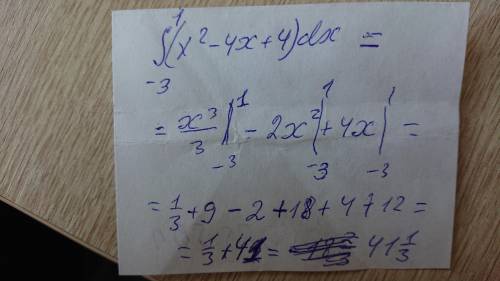 ∫₋₃¹(x² - 4x + 4)dx =
= x³/3 |₋₃¹ - 2x² |₋₃¹ + 4x |₋₃¹ =
= 1/3 + 9 - 2 + 18 + 4 + 12 =
= 1/3 + 41 = 41 1/3